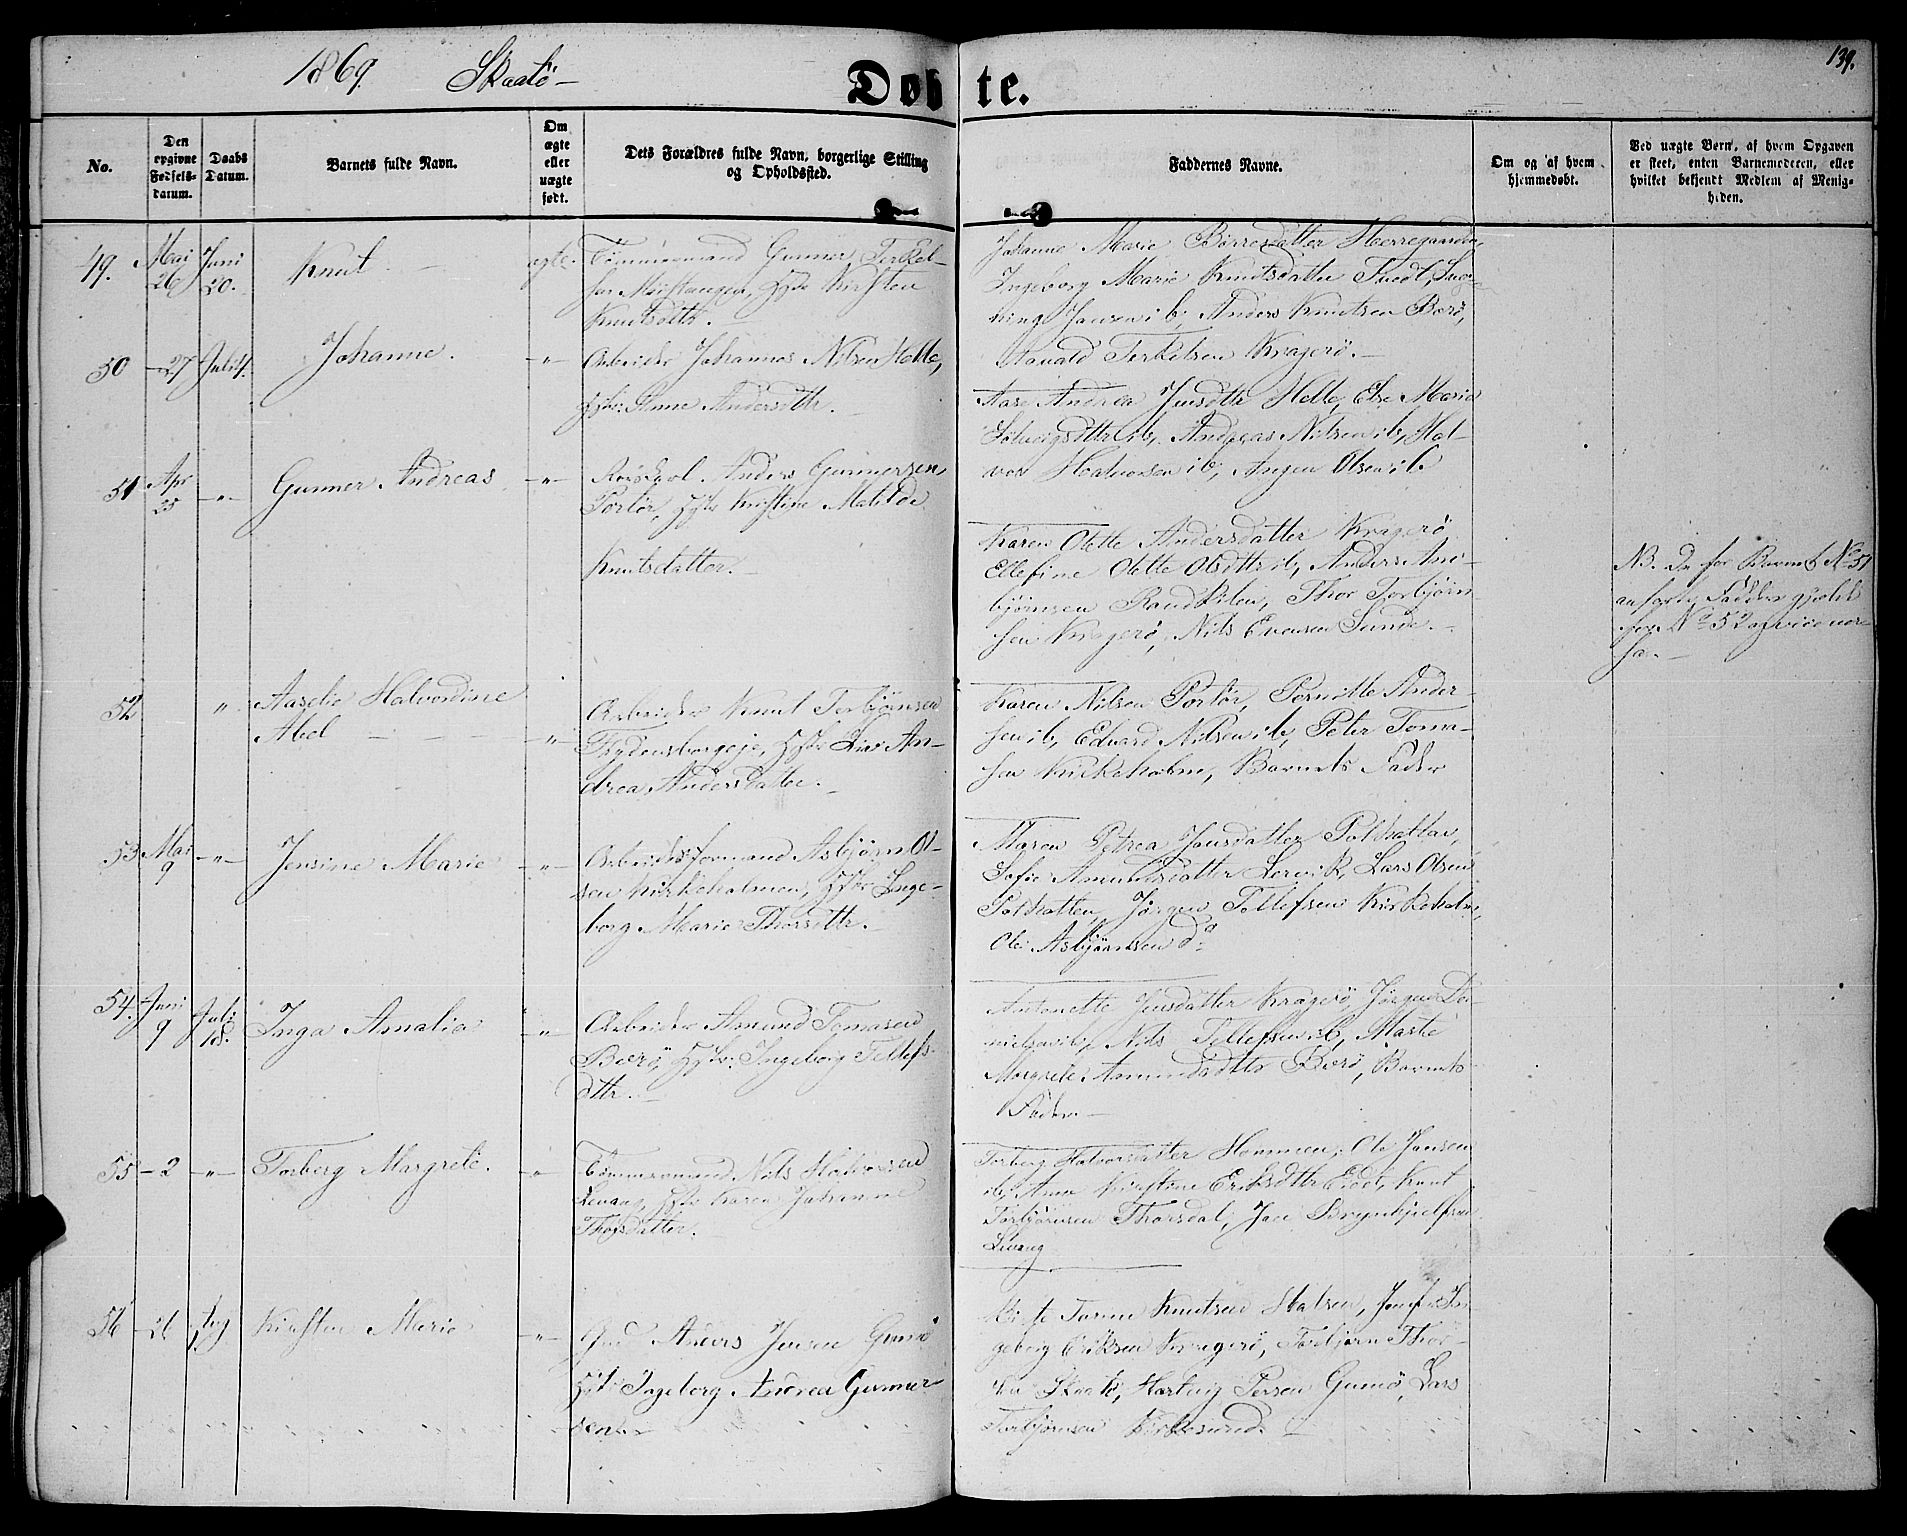 1869. Skaatö
Døbte.
139.
No.
Den opgivne Fødselsdatum.
Daabs Datum.
Barnets fulde Navn.
Om ægte eller uægte født.
Dets Forældres fulde Navn, borgerlige Stilling og Opholdssted.
Faddernes Navne.
Om og af hvem hjemmedøbt.
Ved uægte Børn, af hvem Opgaven er skeet, enten Barnemoderen, eller hvilket bekjendt Medlem af Menigheden.
49. Mai 26 Juni 20. Knut ægte.
Tömmermand Gunner Terkel-
sen Hstr Kirsten
Knutsdttr.
Johanne Marie Börresdatter
Ingeborg Marie Knutsdatter
Jansen ib, Anders Knutsen Berö,
Terkelsen Kragerö.
50 - 27 Juli 4. Johanne. -"-
Arbeider Johannes Nilsen Helle,
Hstr: Anne Andersdttr.
Aase Andrea Jensdttr Helle, Else Maria
ib, Andreas Nilsen ib, Hal-
vor Halvorsen ib, Olsen ib
51 Apr 25 -"- Gunner Andreas -"-
Anders Gunnersen,
Portör, Hstr Kristine Matilde
Knutsdatter.
Karen Olette Andersdatter Kragerö
Ellefine Olette Olsdttr ib, Anders An-
björnsen Thor Torbjörn
sen Kragerö, Nils Evensen Sunde.
NB. De for Barnet No 51
anförte Faddere gjælde
for No 52 og vice ver
sa.
52 " Aaselie Halvordine
Abel -"-
Arbeider Knut Torbjörnsen
Hstr Liv An-
drea Andersdatter.
Karen Nilsen Portör, Pernille Ander-
sen ib, Edvard Nilsen ib, Peter Toma-
sen Kirkeholmen, Barnets Fader
53 Mai 9 -"- Jensine Marie -"-
Arbeidsformand Asbjörn Ol-
sen Kirkeholmen, Hstr Inge-
borg Marie Thorsdttr.
Maren Petrea Jansdatter
Sofie Amundsdatter Lervik, Lars Olsen
Jörgen Tellefsen Kirkeholm,
Ole Asbjörnsen do
54. Juni 9 Juli 18. Inga Amalia -"-
Arbeider Amund Tomasen
Berö, Hstr: Ingeborg Tellefs-
dttr.
Antonette Jensdatter Kragerö, Jörgen Da-
nielsen ib, Nils Tellefsen ib, Marte
Margrete Amundsdttr Berö, Barnets
Fader.
55 - 2 -"- Torberg Margrete. "
Tömmermand Nils Halvorsen
Levang, Hstr Karen Johanne
Thorsdatter.
Torberg Halvorsdatter Hommen, Ole Jansen
ib, Anne Kirstine Eriksdttr Eidet, Knut
Torbjörnsen Thorsdal, Jan Brynhjelfsen
Levang
56 - 21 Aug 1 Kirsten Marie -"-
Anders Jensen Gumö
Hstr Ingeborg Andrea Gunner-
sen.
Tonne Knutsen Halsen, In-
geborg Eriksen Kragerö, Torbjörn Thor-
sen Skaatö, Hartvig Persen Gumö, Lars
Torbjörnsen Kirkesund.